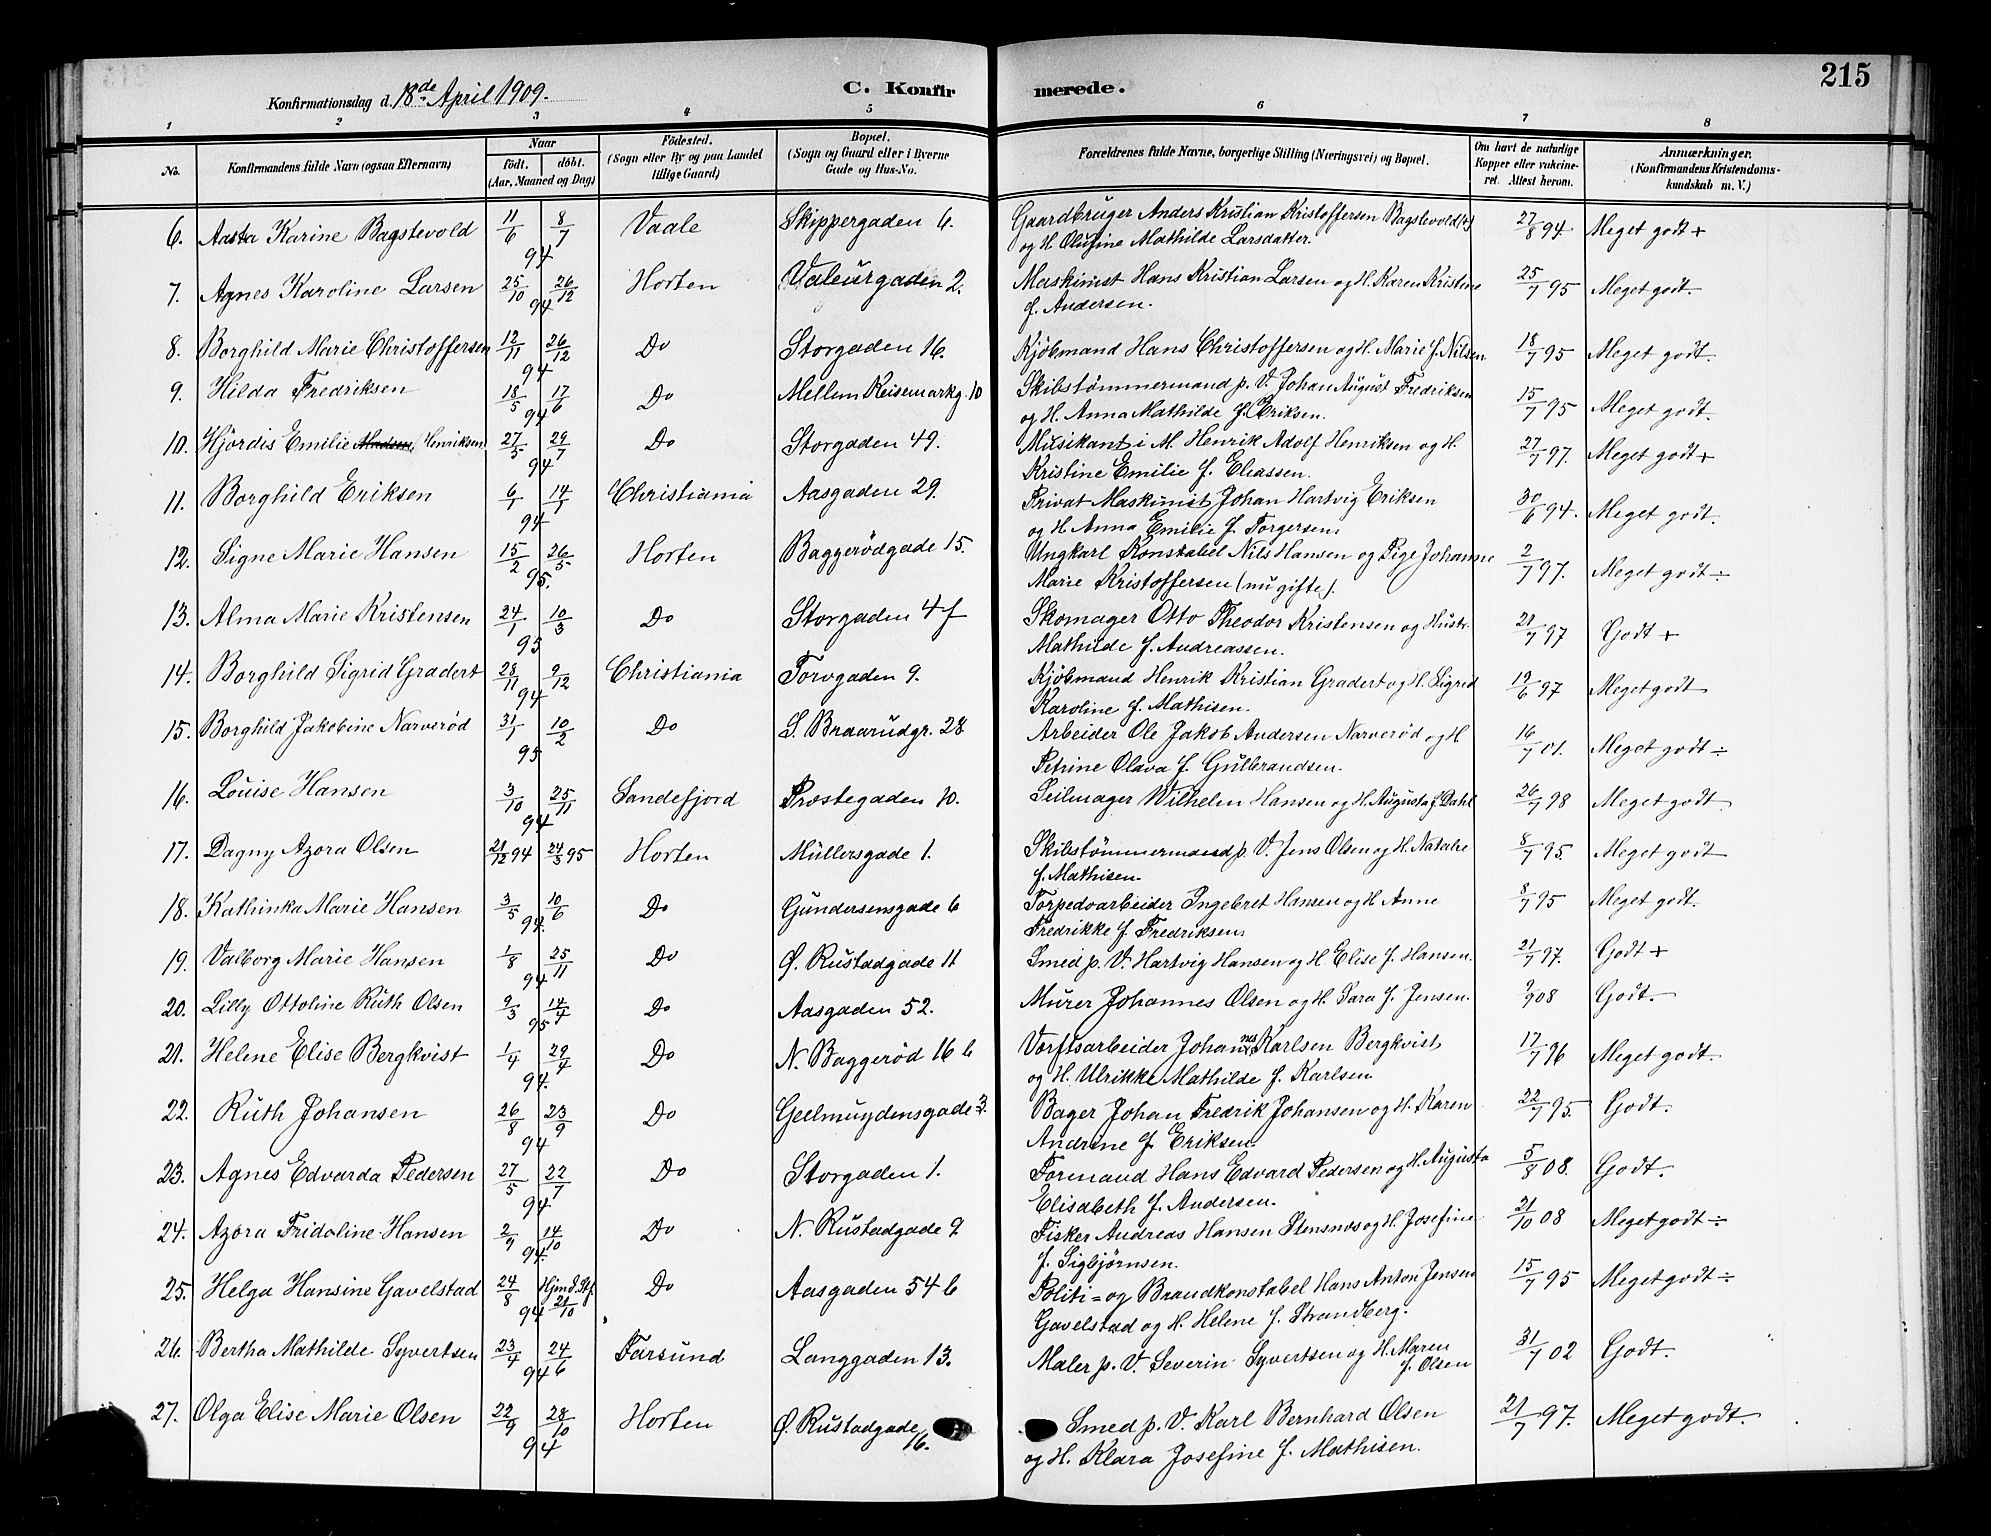 215
Konfirmationsdag d. 18de April 1909.
C. Konfir merede.
1 2 3 4 5 6 7 8
No. Konfirmandens fulde Navn (ogsaa Efternavn) Naar födt. döbt. (Aar, Maaned og Dag) Födested. (Sogn eller By og paa Landet tillige Gaard) Bopæl. (Sogn og Gaard eller i Byerne Gade og Hus-No. Forældrenes fulde Navne, borgerlige Stilling (Næringsvei) og Bopæl. Om havt de naturlige Kopper eller vakcineret. Attest herom. Anmærkninger. (Konfirmandens Kristendomskundskab m. V.)
6. Aasta Karine Bagstevold 11/6 8/7 94 Vaale Skippergaden 6. Gaardbruger Anders Kristian Kristoffersen Bagstevold (+) 27/8 94. Meget godt +
og H. Olufine Mathilde Larsdatter.
7. Agnes Karoline Larsen 25/10 26/12 94 Horten Valeurgaden 2. Maskinist Hans Kristian Larsen og H. Karen Kristine 25/7 95 Meget godt.
f. Andersen.
8. Borghild Marie Christoffersen 12/11 26/12 94 Do Storgaden 16. Kjöbmand Hans Christoffersen og H. Marie f. Nilsen 18/7 95 Meget godt.
9. Hilda Fredriksen 18/5 17/6 94 Do Mellem Keisemarkg. 10 Skibstömmermand p. V. Johan August Fredriksen 15/7 95 Meget godt.
og H. Anna Mathilde f. Eriksen.
10. Hjördis Emilie Madsen Henriksen 27/5 29/7 94 Do Storgaden 49. Musikant i M. Henrik Adolf Henriksen og H. 27/7 97. Meget godt +
Kristine Emilie f. Eliassen.
11. Borghild Eriksen 6/1 14/1 94 Christiania Aasgaden 29. Privat Maskinist Johan Hartvig Eriksen 30/6 94. Meget godt.
og H. Anna Emilie f. Torgersen.
12. Signe Marie Hansen 15/2 26/5 95. Horten Baggerödgade 15. Ungkarl Konstabel Nils Hansen og Pige Johanne 2/7 97. Meget godt ÷
Marie Kristoffersen (nu gifte).
13. Alma Marie Kristensen 24/1 10/3 95 Do Storgaden 4 f Skomager Otto Theodor Kristensen og Hustr. 21/7 97 Godt +
Mathilde f. Andreassen.
14. Borghild Sigrid Gradert 28/11 9/12 94 Christiania Torvgaden 9. Kjöbmand Henrik Kristian Gradert og H. Sigrid 19/6 97 Meget godt
Karoline f. Mathisen.
15. Borghild Jakobine Narveröd 31/1 10/2 95 Do S. Braarudgr. 28 Arbeider Ole Jakob Andersen Narveröd og H 16/7 01. Meget godt ÷
Petrine Olava f. Gulbrandsen.
16. Louise Hansen 3/10 25/11 94 Sandefjord Præstegaden 10. Seilmager Wilhelm Hansen og H. Augusta f. Dahl 26/7 98 Meget godt
17. Dagny Azora Olsen 21/12 94 24/3 95 Horten Müllersgade 1. Skibstömmermand p. V. Jens Olsen og H. Natalie 8/7 95. Meget godt
f. Mathisen.
18. Kathinka Marie Hansen 3/5 10/6 94. Do Gundersensgade 6 Torpedoarbeider Ingebret Hansen og H Anne 8/7 95 Meget godt.
Fredrikke f. Fredriksen.
19. Valborg Marie Hansen 1/8 25/11 94 Do Ø. Rustadgade 11 Smed p. V. Hartvig Hansen og H. Elise f. Hansen. 21/7 97. Godt +
20. Lilly Ottoline Ruth Olsen 9/3 14/4 95 Do Aasgaden 52. Murer Johannes Olsen og H. Sara f. Jensen. 08 Godt.
21. Helene Elise Bergkvist 1/4 29/4 94. Do N. Baggeröd 16 b Værftsarbeider Johannes Karlsen Bergkvist 17/7 96 Meget godt.
og H. Ulrikke Mathilde f. Karlsen
22. Ruth Johansen 26/8 23/9 94 Do Geelmuydensgade 3. Bager Johan Fredrik Johansen og H. Karen 22/7 95. Godt.
Andrine f. Eriksen.
23. Agnes Edvarda Pedersen 27/5 22/7 94 Do Storgaden 1. Formand Hans Edvard Pedersen og H. Augusta 5/8 08. Godt.
Elisabeth f. Andersen.
24. Azora Fridoline Hansen 2/9 14/10 94. Do N. Rustadgade 9 Fisker Andreas Hansen Stensnæs og H. Josefine 21/10 08 Meget godt ÷
f. Sigbjörnsen.
25. Helga Hansine Gavelstad 24/8 94 Hjmd. Stf. 21/10 Do Aasgaden 54 b Politi= og Brandkonstabel Hans Anton Jensen 15/7 95 Meget godt ÷
Gavelstad og H. Helene f. Strandberg.
26. Bertha Mathilde Syvertsen 23/4 24/6 94 Farsund Langgaden 13. Maler p. V. Severin Syvertsen og H. Maren 31/7 02 Godt.
f. Olsen
27. Olga Elise Marie Olsen 22/9 28/10 94 Horten Ø. Rustadgade 16. Smed p. V. Karl Bernhard Olsen 21/7 97. Meget godt.
og H. Klara Josefine f. Mathisen.